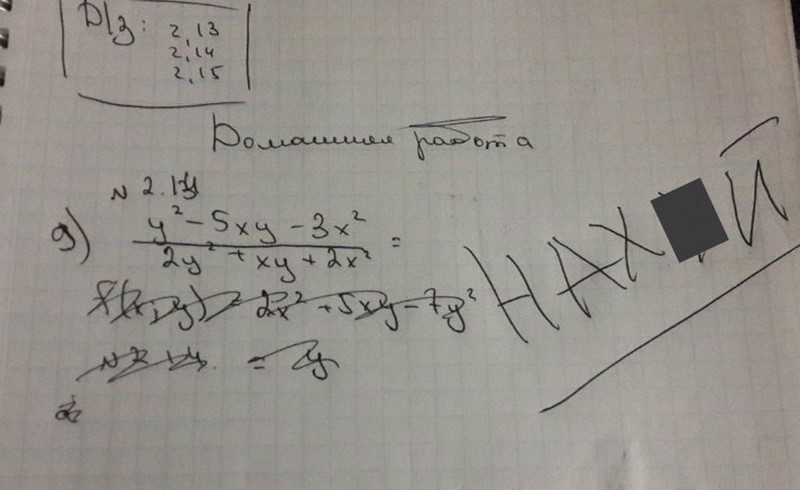 Д/з: 2,13
2,14
2,15
Домашняя работа
N 2.13
д) y² - 5xy - 3x² / 2y² + xy + 2x² =
f(x,y) = 2x² + 5xy - 7y²
= y
НАХ Й